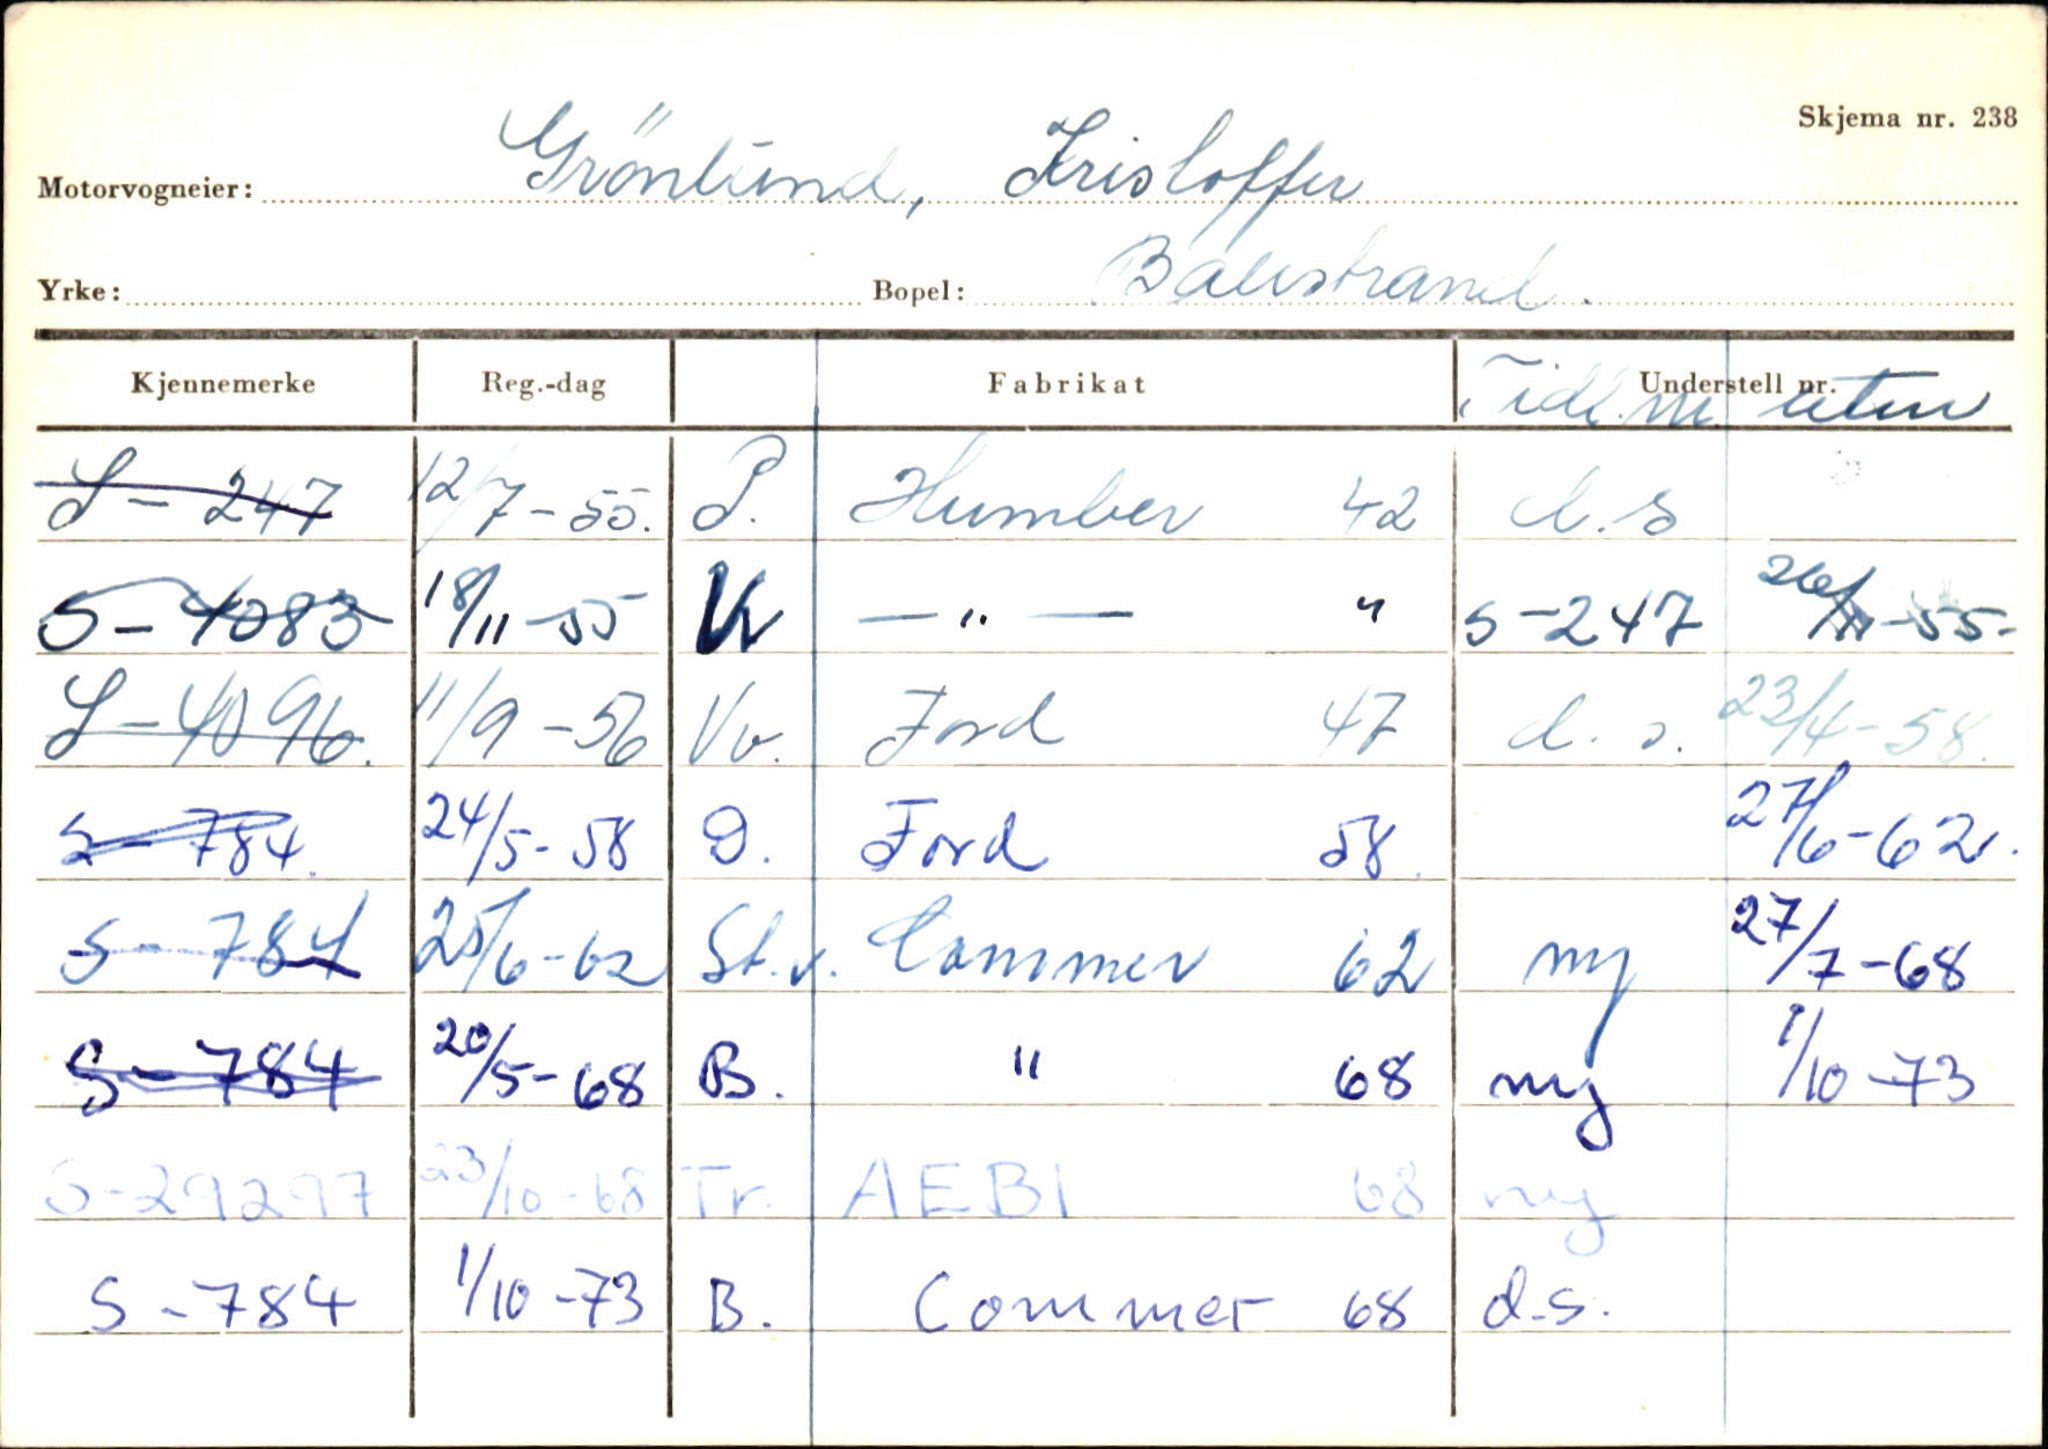 Skjema nr. 238
Motorvogneier: Grönlund, Kristoffer
Yrke: Bopel: Balestrand.
Kjennemerke Reg.-dag Fabrikat Understell nr. Tidl. nr. uten
S - 247 12/7 - 55. P. Humber 42 d.s
S - 4083 18/11 - 55 Vv — " — " S - 247 26/11 - 55 -
S - 4096. 11/9 - 56 Vv. Ford 47 d. s. 23/4 - 58.
S - 784. 24/5 - 58 D. Ford 58. 27/6 - 62.
S - 784 25/6 - 62 St. v. Commer 62 ny 27/7 - 68
S - 784 20/5 - 68 B. " 68 ny 1/10 - 73
S - 29297 23/10 - 68 Tr. AEBI 68 ny
S - 784 1/10 - 73 B. Commer 68 d.s.